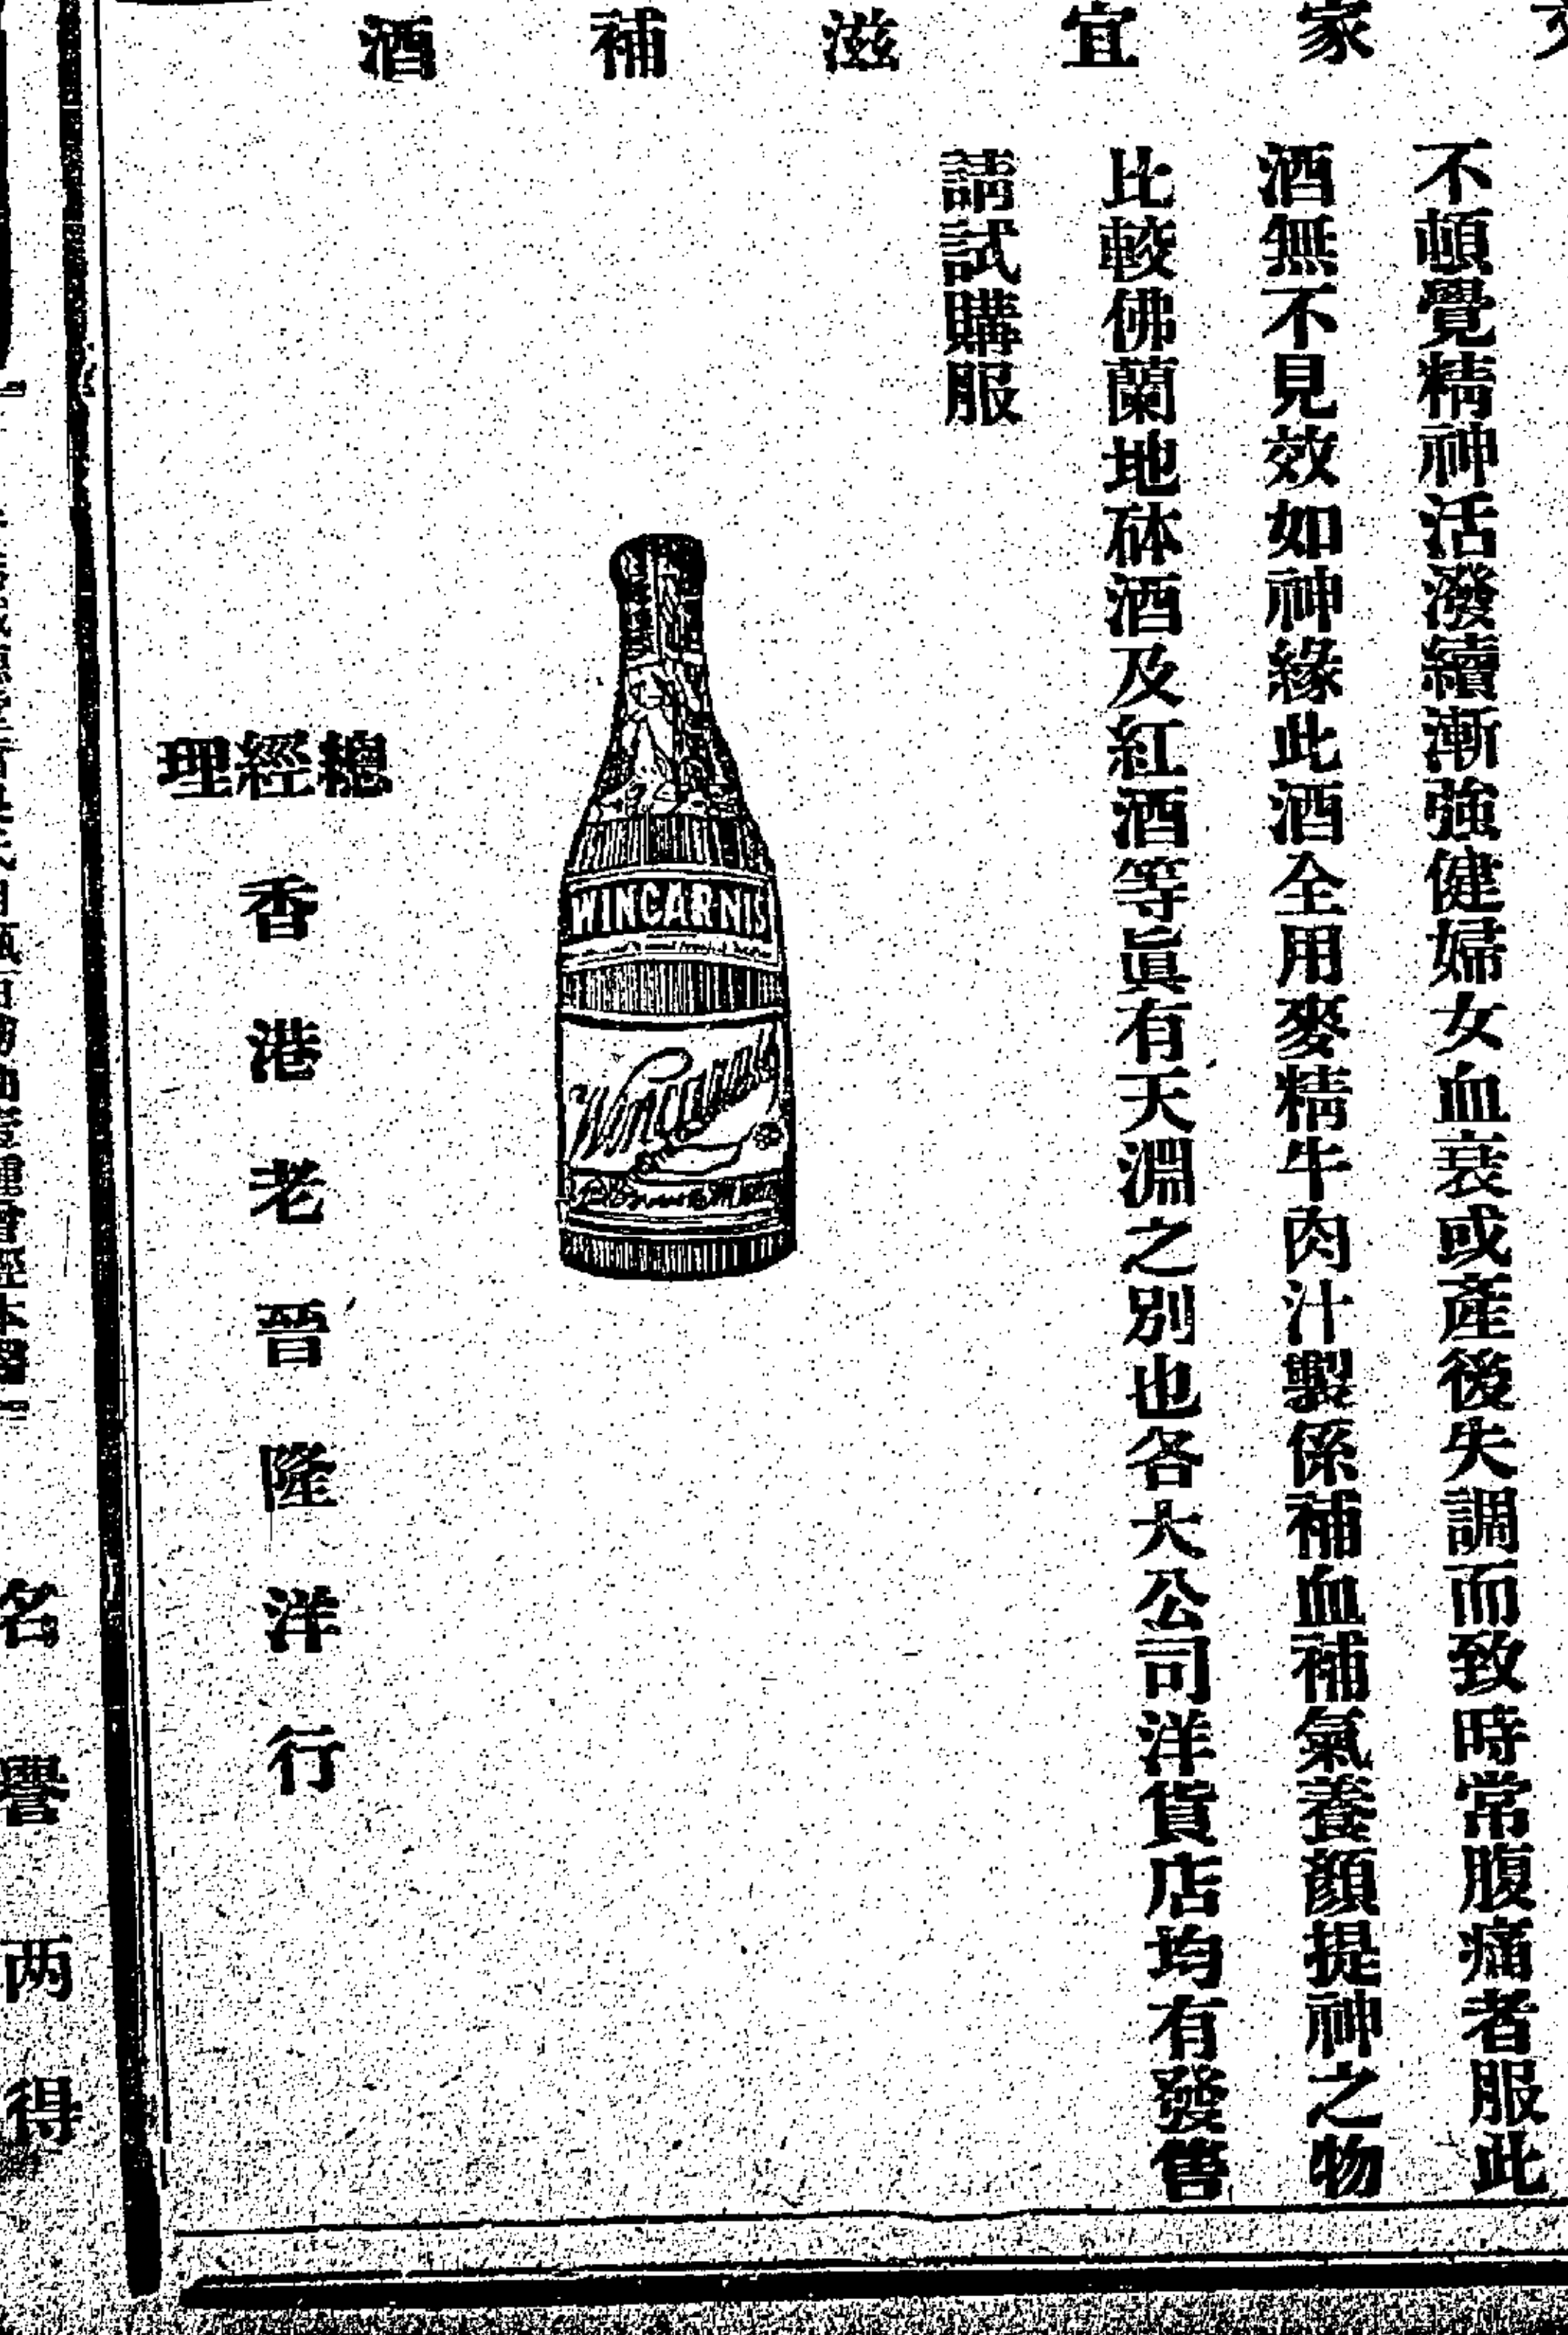 家宜滋補酒
不頓覺精神活潑續漸強健婦女血衰或產後失調而致時常腹痛者服此
酒無不見效如神緣此酒全用麥精牛肉汁製係補血補氣養顏提神之物
比較佛蘭地砵酒及紅酒等眞有天淵之別也各大公司洋貨店均有發售
請試購服
WINCARNIS
Wincarnis
總經理
香港老晉隆洋行
名譽两得